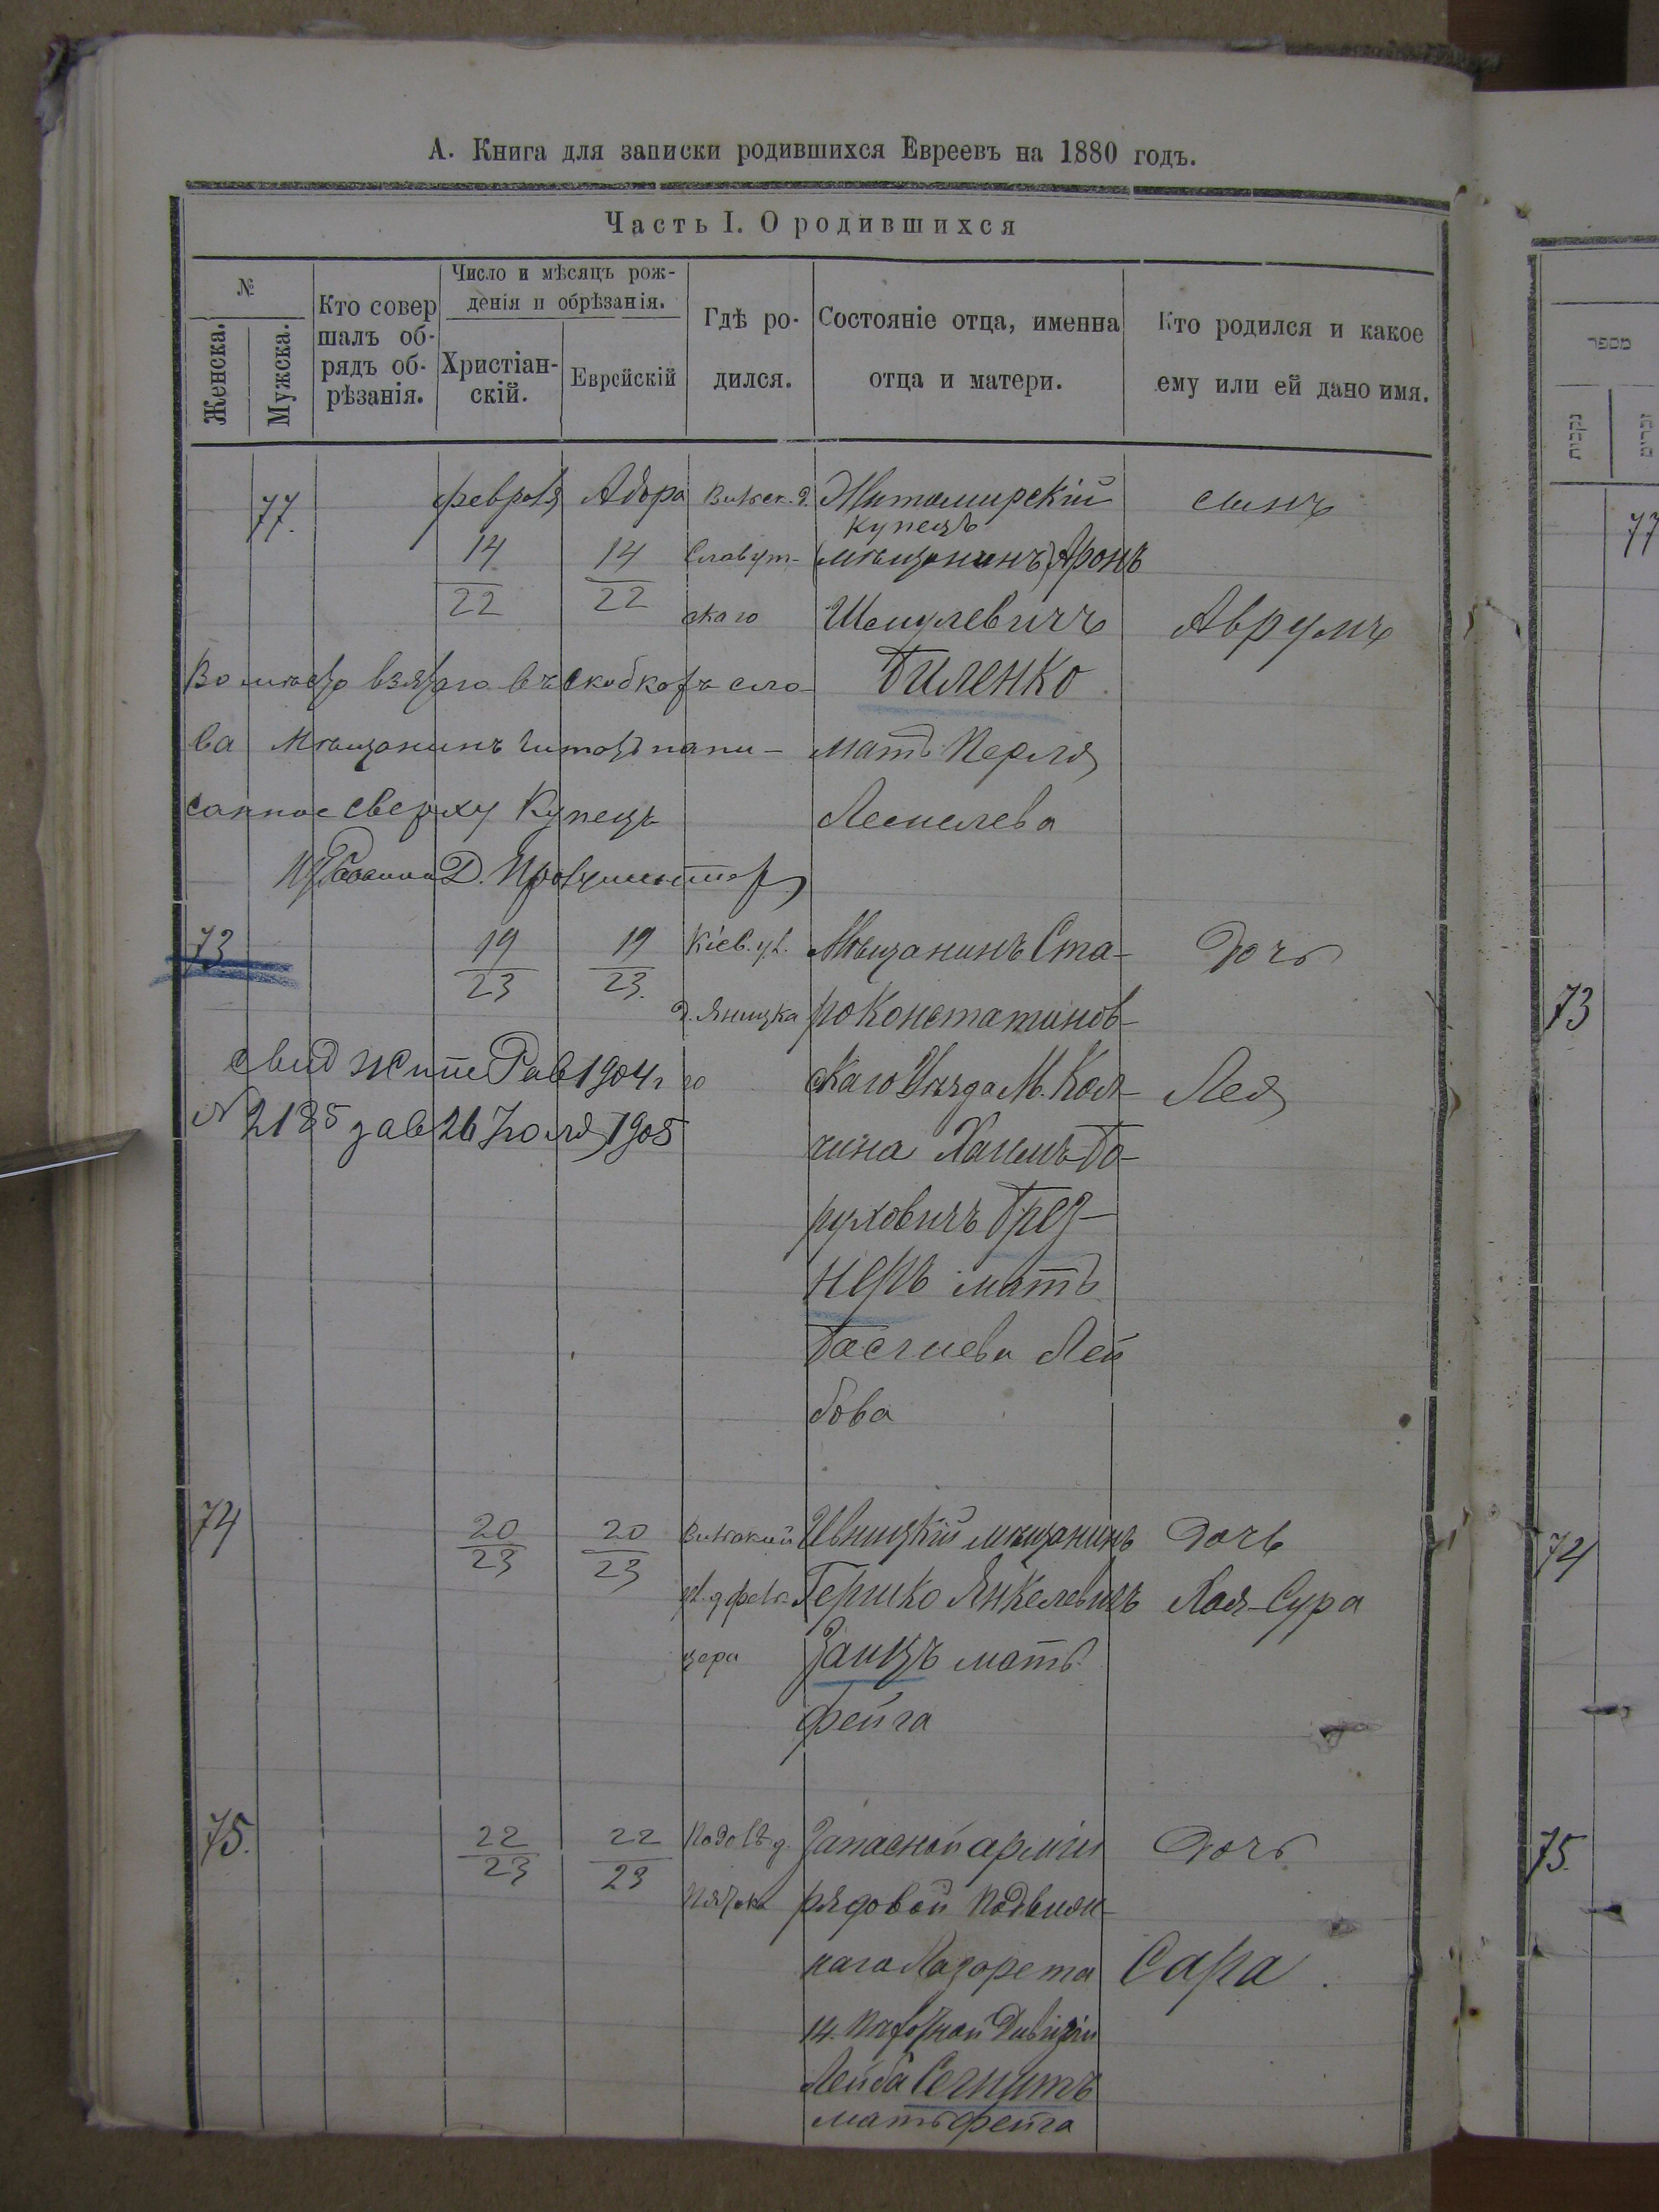 А. Книга для записки родившихся Евреевъ на 1880 годъ.
Часть I. О родившихся
№
Женска.
Мужска.
Кто совер
шалъ об-
рядъ об-
рѣзанія.
Число и мѣсяцъ рож-
денія и обрѣзанія.
Христіан-
скій.
Еврейскій
Гдѣ ро-
дился.
Состояніе отца, именна
отца и матери.
Кто родился и какое
ему или ей дано имя.
77.
февраля
14
22
Адора
14
22
Славут-
скаго
Житомирскій
купецъ
(мѣщанинъ) Аронъ
Шмулевичъ
Биленко
мать Перля
сынъ
Аврумъ
Вомѣсто взятаго въ скобкахъ сло-
ва Мѣщанинъ читать напи-
санное сверху Купецъ
73
19
23
19
23.
Кіев. ул.
д. Яницка
го
Мѣщанинъ Ста-
роконстатинов-
скаго Уѣзда М. Кол-
чина Хаимъ Бо-
руховичъ Брез-
неръ мать
Басшева Лей
бова
Дочь
Лея
1904 г
№ 2185 26 Іюля 1905
74
20
23
20
23
цера
Ивницкій мѣщанинъ
Гершко Янкелевичъ
Заицъ мать
Фейга
Дочь
Хая-Сура
75.
22
23
22
23
Запасной арміи
рядовой Подвиж-
наго Лазарета
14. Дивизіи
Лейба
мать Фейга
Дочь
Сара.
מספר
נקבות
זכרים
77
73
74
75.